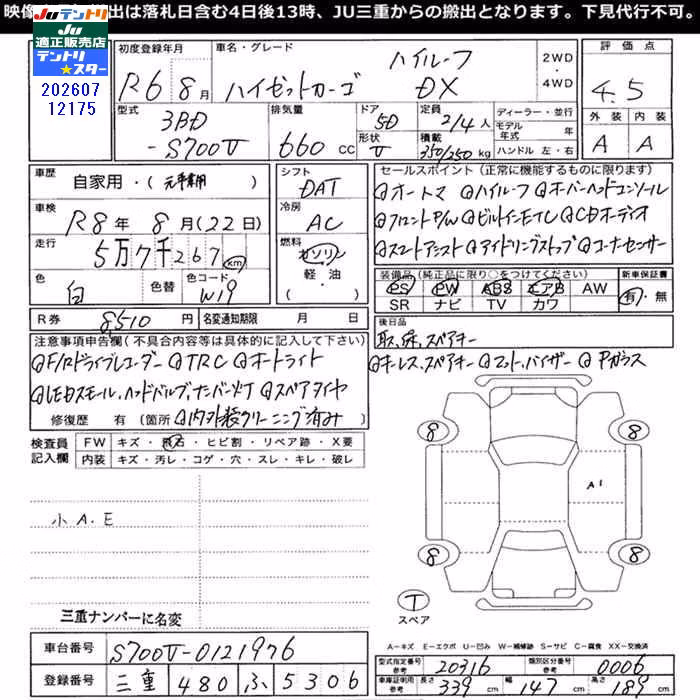 映像 出は落札日含む4日後13時、JU三重からの搬出となります。下見代行不可。
JUテントリ
適正販売店
テントリ
★スター
202607
12175
初度登録年月
R6 8月
車名・グレード
ハイルーフ
ハイゼットカーゴ DX
2WD
・
4WD
評価点
4.5
外装 内装
A A
型式
3BD
-S700V
排気量
660 cc
ドア
5D
形状
V
定員
2/4人
積載
350/250 kg
ディーラー・並行
モデル年式 年
ハンドル 左・右
車歴
自家用・(元事業用)
車検
R8年 8月(22日)
走行
5万7千267 km
色
白
色替
色コード
W19
シフト
DAT
冷房
AC
燃料
ガソリン
軽・油
( )
セールスポイント(正常に機能するものに限ります)
@オートマ @ハイルーフ @オーバーヘッドコンソール
@フロントP/W @ビルトインETC @CDオーディオ
@スマートアシスト @アイドリングストップ @コーナーセンサー
装備品(純正品に限り○をつけてください)
PS PW ABS エアB AW
SR ナビ TV カワ
新車保証書
有・無
R券 8,510 円
名変通知期限 月 日
後日品
取、保、スペアキー
注意事項申告欄(不具合内容等は具体的に記入して下さい)
@F/Rドライブレコーダー @TRC @オートライト
@LEDスモール、ヘッドバルブ、ナンバー灯 @スペアタイヤ
修復歴 有 (箇所 @内外装クリーニング済み)
@キーレス、スペアキー @マット、バイザー @Pガラス
検査員
記入欄
FW キズ・飛石・ヒビ割・リペア跡・X要
内装 キズ・汚レ・コゲ・穴・スレ・キレ・破レ
小A.E
三重ナンバーに名変
8
8
8
8
A1
T
スペア
A－キズ E－エクボ U－凹み W－補修跡 S－サビ C－腐食 XX－交換済
車台番号 S700V-0121976
登録番号 三重 480 ふ 5306
型式指定番号
参考
20316
類別区分番号
参考
0006
車庫証明用
参考
長さ 339 cm
幅 147 cm
高さ 189 cm